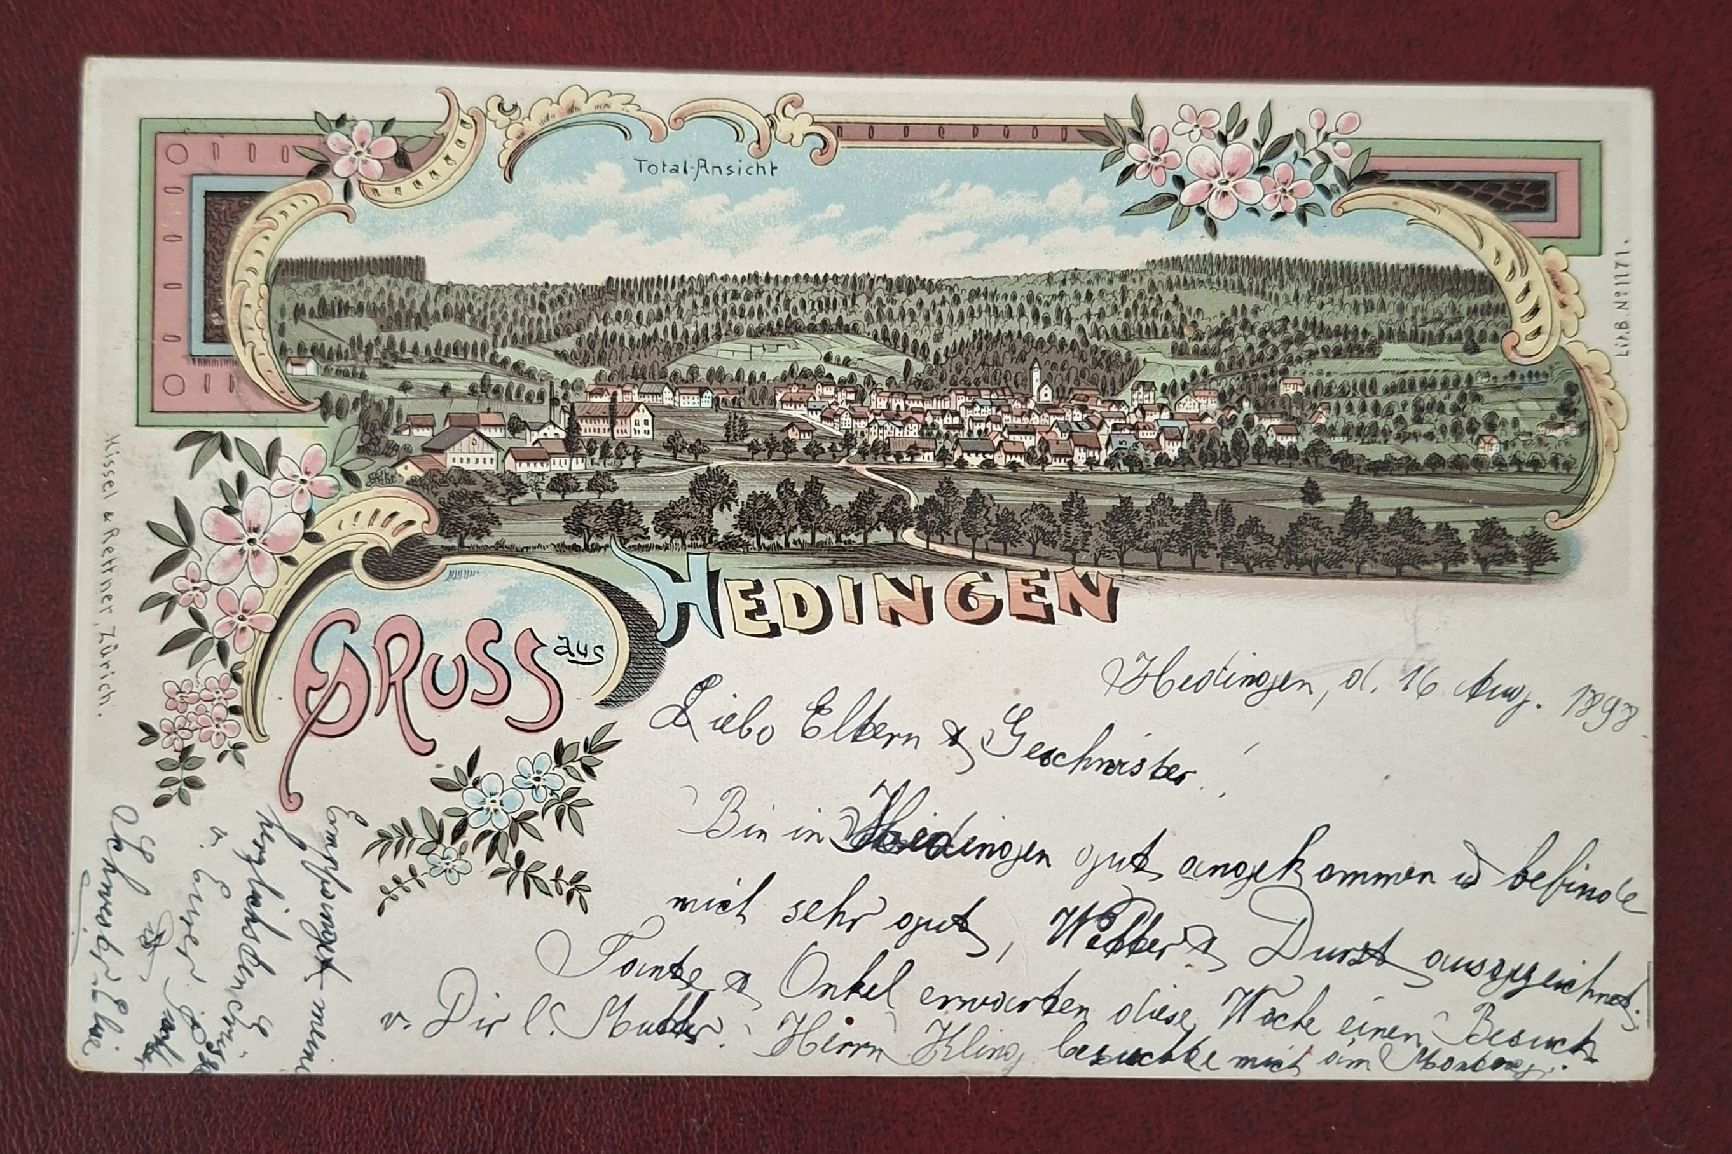 Total-Ansicht
L.v.A.B. Nº 1171.
Kissel & Rettner, Zürich.
GRUSS aus HEDINGEN
Hedingen, d. 16 Aug. 1898
Liebe Eltern & Geschwister!
Bin in Hedingen gut angekommen u befinde
mich sehr gut, Wetter & Durst ausgezeichnet,
Tante & Onkel erwarten diese Woche einen Besuch
v. Dir l. Mutter. Herrn Kling besuchte mich am Montag.
Empfanget meine
herzlichsten Grüsse
u. Euer
Schwester